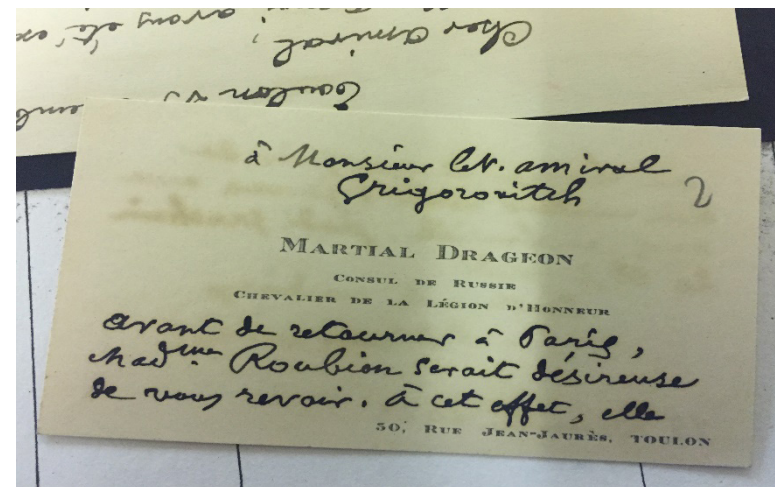 Toulon
Cher Amiral,
avons été
à Monsieur le V. amiral
Grigorovitch
2
MARTIAL DRAGEON
CONSUL DE RUSSIE
CHEVALIER DE LA LÉGION D'HONNEUR
avant de retourner à Paris,
Madme Roubion serait désireuse
de vous revoir. À cet effet, elle
50, RUE JEAN-JAURÈS, TOULON